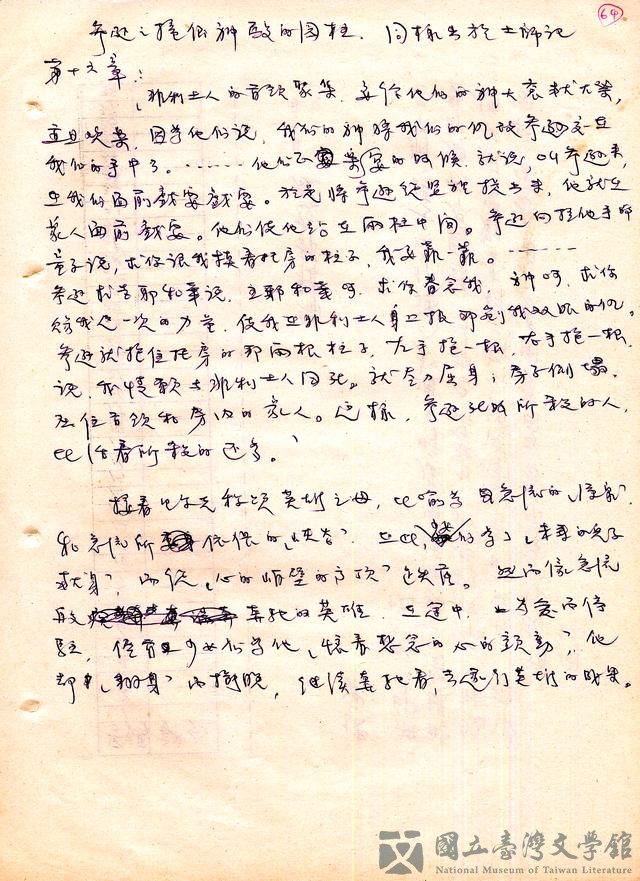 64
參孫之撞倒神殿的圓柱，同樣出於士師記
第十六章：
「非利士人的首領聚集，要給他們的神大袞獻大祭，
並且歡樂，因為他們說，我們的神將我們的仇敵參孫交在
我們的手中了。……他們正宴樂的時候，就說，叫參孫來，
在我們面前戲耍戲耍。於是將參孫從監裡提出來，他就在
眾人面前戲耍。他們使他站在兩柱中間。參孫向拉他手的
童子說，求你讓我摸著托房的柱子，我要靠一靠。……
參孫求告耶和華說，主耶和華啊，求你眷念我，神啊，求你
給我這一次的力量，使我在非利士人身上報那剜我雙眼的仇。
參孫就抱住托房的那兩根柱子，左手抱一根，右手抱一根，
說，我情願與非利士人同死。就盡力屈身，房子倒塌，
壓住首領和房內的眾人。這樣，參孫死時所殺的人，
比活著所殺的還多。」
接著里爾克稱頌英雄之母，比喻為急流的
和急流所 的「峽谷」。在此， 為了「未來的兒子
獻身」，而從「心的峭壁的高頂」 。然而像急流
般 奔馳的英雄，在途中，
，儘管 少女們為他「懷著 的心的顫動」，他
卻「翻身」而 ，繼續奔馳著，去 英雄的 。
國立臺灣文學館
National Museum of Taiwan Literature